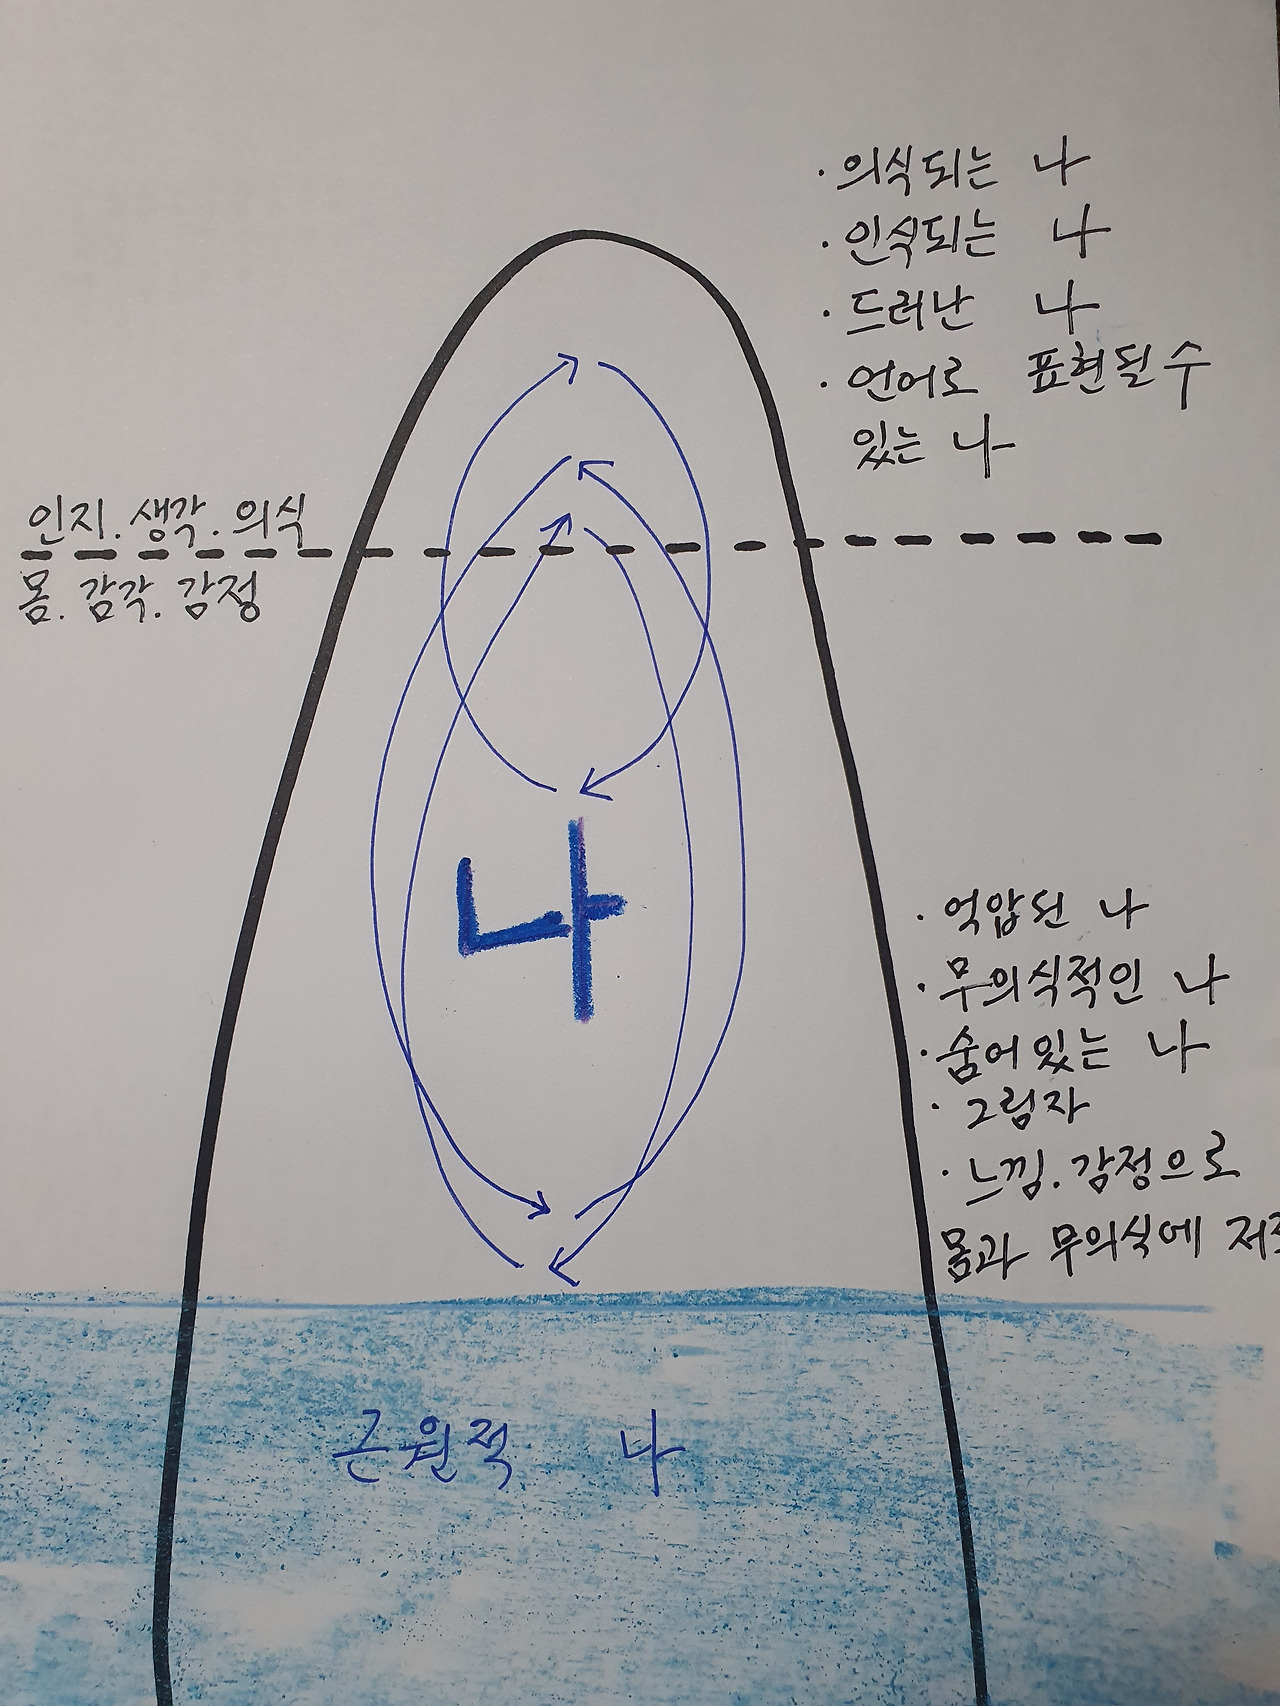 · 의식되는 나
· 인식되는 나
· 드러난 나
· 언어로 표현될 수
있는 나
인지. 생각. 의식
몸. 감각. 감정
나
· 억압된 나
· 무의식적인 나
· 숨어있는 나
· 그림자
· 느낌. 감정으로
몸과 무의식에
근원적 나